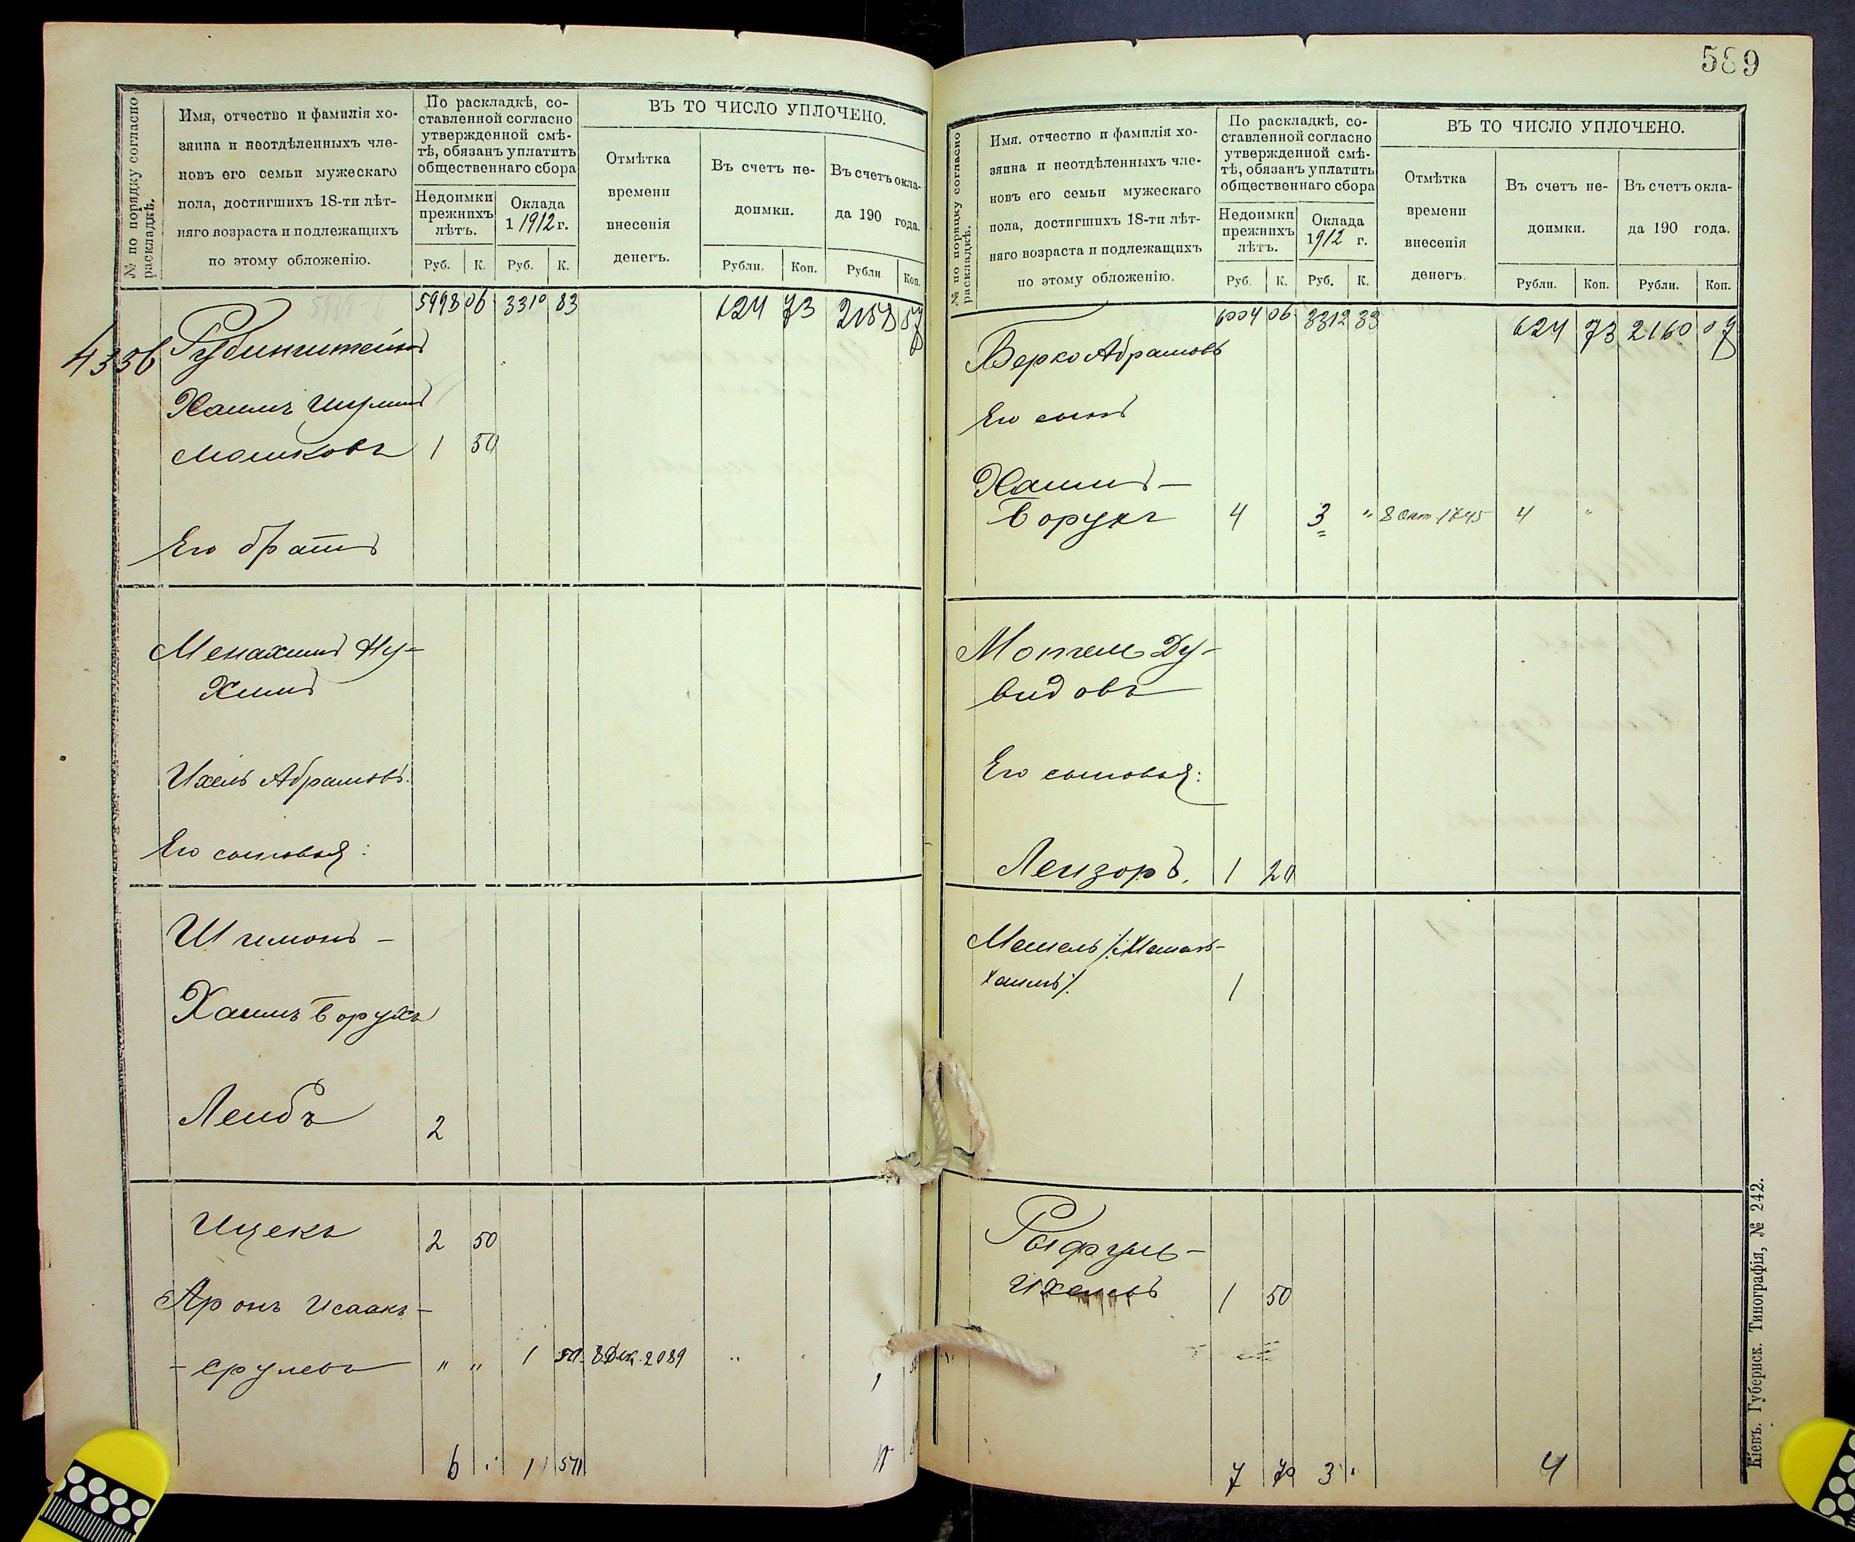 589
№ по порядку согласно раскладкѣ.
Имя, отчество и фамилія хо-
зяина и неотдѣленныхъ чле-
новъ его семьи мужескаго
пола, достигшихъ 18-ти лѣт-
няго возраста и подлежащихъ
по этому обложенію.
По раскладкѣ, со-
ставленной согласно
утвержденной смѣ-
тѣ, обязанъ уплатить
общественнаго сбора
Недоимки
прежнихъ
лѣтъ.
Оклада
1912 г.
Руб. К. Руб. К.
ВЪ ТО ЧИСЛО УПЛОЧЕНО.
Отмѣтка
времени
внесенія
денегъ.
Въ счетъ не-
доимки.
Въ счетъ окла-
да 190 года.
Рубли. Коп. Рубли Коп.
5998 06 3310 83 624 73 2158 57
4336 Рубинштейнъ
Хаимъ Шулимъ
Мошковъ 1 50
Его братъ
Менахимъ Ну-
химъ
Ихель Абрамовъ.
Его сыновья:
Шимонъ -
Хаимъ Борухъ
Лейбъ 2
Ицекъ 2 50
Аронъ Исаакъ-
- Срулевъ " " 1 50 8 Дек. 2089 " 1
6 " 1 50
№ по порядку согласно раскладкѣ.
Имя. отчество и фамилія хо-
зяина и неотдѣленныхъ чле-
новъ его семьи мужескаго
пола, достигшихъ 18-ти лѣт-
няго возраста и подлежащихъ
по этому обложенію.
По раскладкѣ, со-
ставленной согласно
утвержденной смѣ-
тѣ, обязанъ уплатить
общественнаго сбора
Недоимки
прежнихъ
лѣтъ.
Оклада
1912 г.
Руб. К. Руб. К.
ВЪ ТО ЧИСЛО УПЛОЧЕНО.
Отмѣтка
времени
внесенія
денегъ.
Въ счетъ не-
доимки.
Въ счетъ окла-
да 190 года.
Рубли. Коп. Рубли. Коп.
6004 06 3312 33 624 73 2160 07
Берко Абрамовъ
Его сынъ
Хаимъ -
Борухъ 4 3 " 8 Окт 1745 4 "
Мотель Ду-
видовъ
Его сыновья:
Лейзоръ. 1 20
Мошель /:Машль-
Хаимъ:/. 1
Рафуль-
Ихелевъ 1 50
7 70 3 " 4
Кіевъ. Губернск. Типографія, № 242.